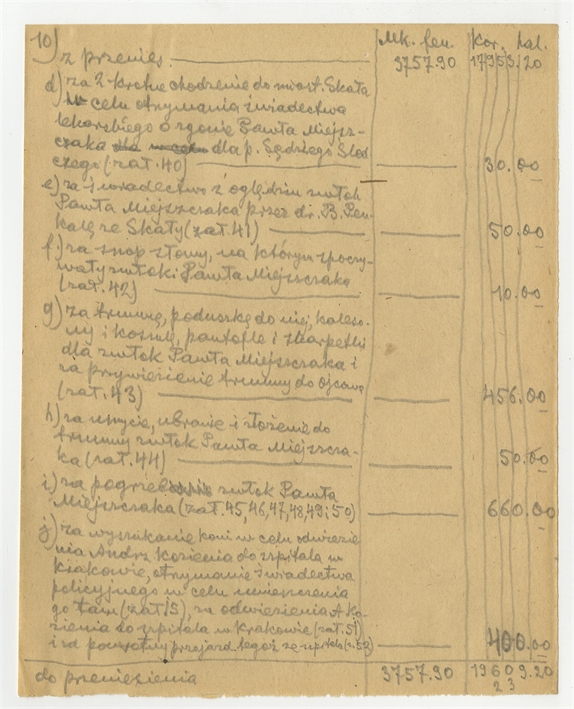 10) Mk. fen. Kor. hal.
z przenies. 3757.90 17953.20
d) za 2-krotne chodzenie do miast. Skała
w celu otrzymania świadectwa
lekarskiego o zgonie Pawła Miejsz-
czaka dla p. Sędziego Śled
czego (zał. 40) 30.00
e) za świadectwo z oględzin zwłok
Pawła Miejszczaka przez dr. B. Pen
kalę ze Skały (zał. 41) 50.00
f) za snop słomy, na którym spoczy-
wały zwłoki Pawła Miejszczaka
(zał. 42) 10.00
g) za trumnę, poduszkę do niej, kaleso-
ny i koszulę, pantofle i skarpetki
dla zwłok Pawła Miejszczaka i
za przywiezienie trumny do Ojcowa
(zał. 43) 456.00
h) za umycie, ubranie i złożenie do
trumny zwłok Pawła Miejszcza-
ka (zał. 44) 50.00
i) za pogrzeb zwłok Pawła
Miejszczaka (zał. 45, 46, 47, 48, 49 i 50) 660.00
j) za wyszukanie koni w celu odwiezie
nia Andrz. Kozienia do szpitala w
Krakowie, otrzymanie świadectwa
policyjnego w celu umieszczenia
go tam (zał. 15), za odwiezienia A. Ko-
zienia do szpitala w Krakowie (zał. 51)
i za powrotny przejazd tegoż ze szpitala (z. 52) 400.00
do przeniesienia 3757.90 19609.20
23